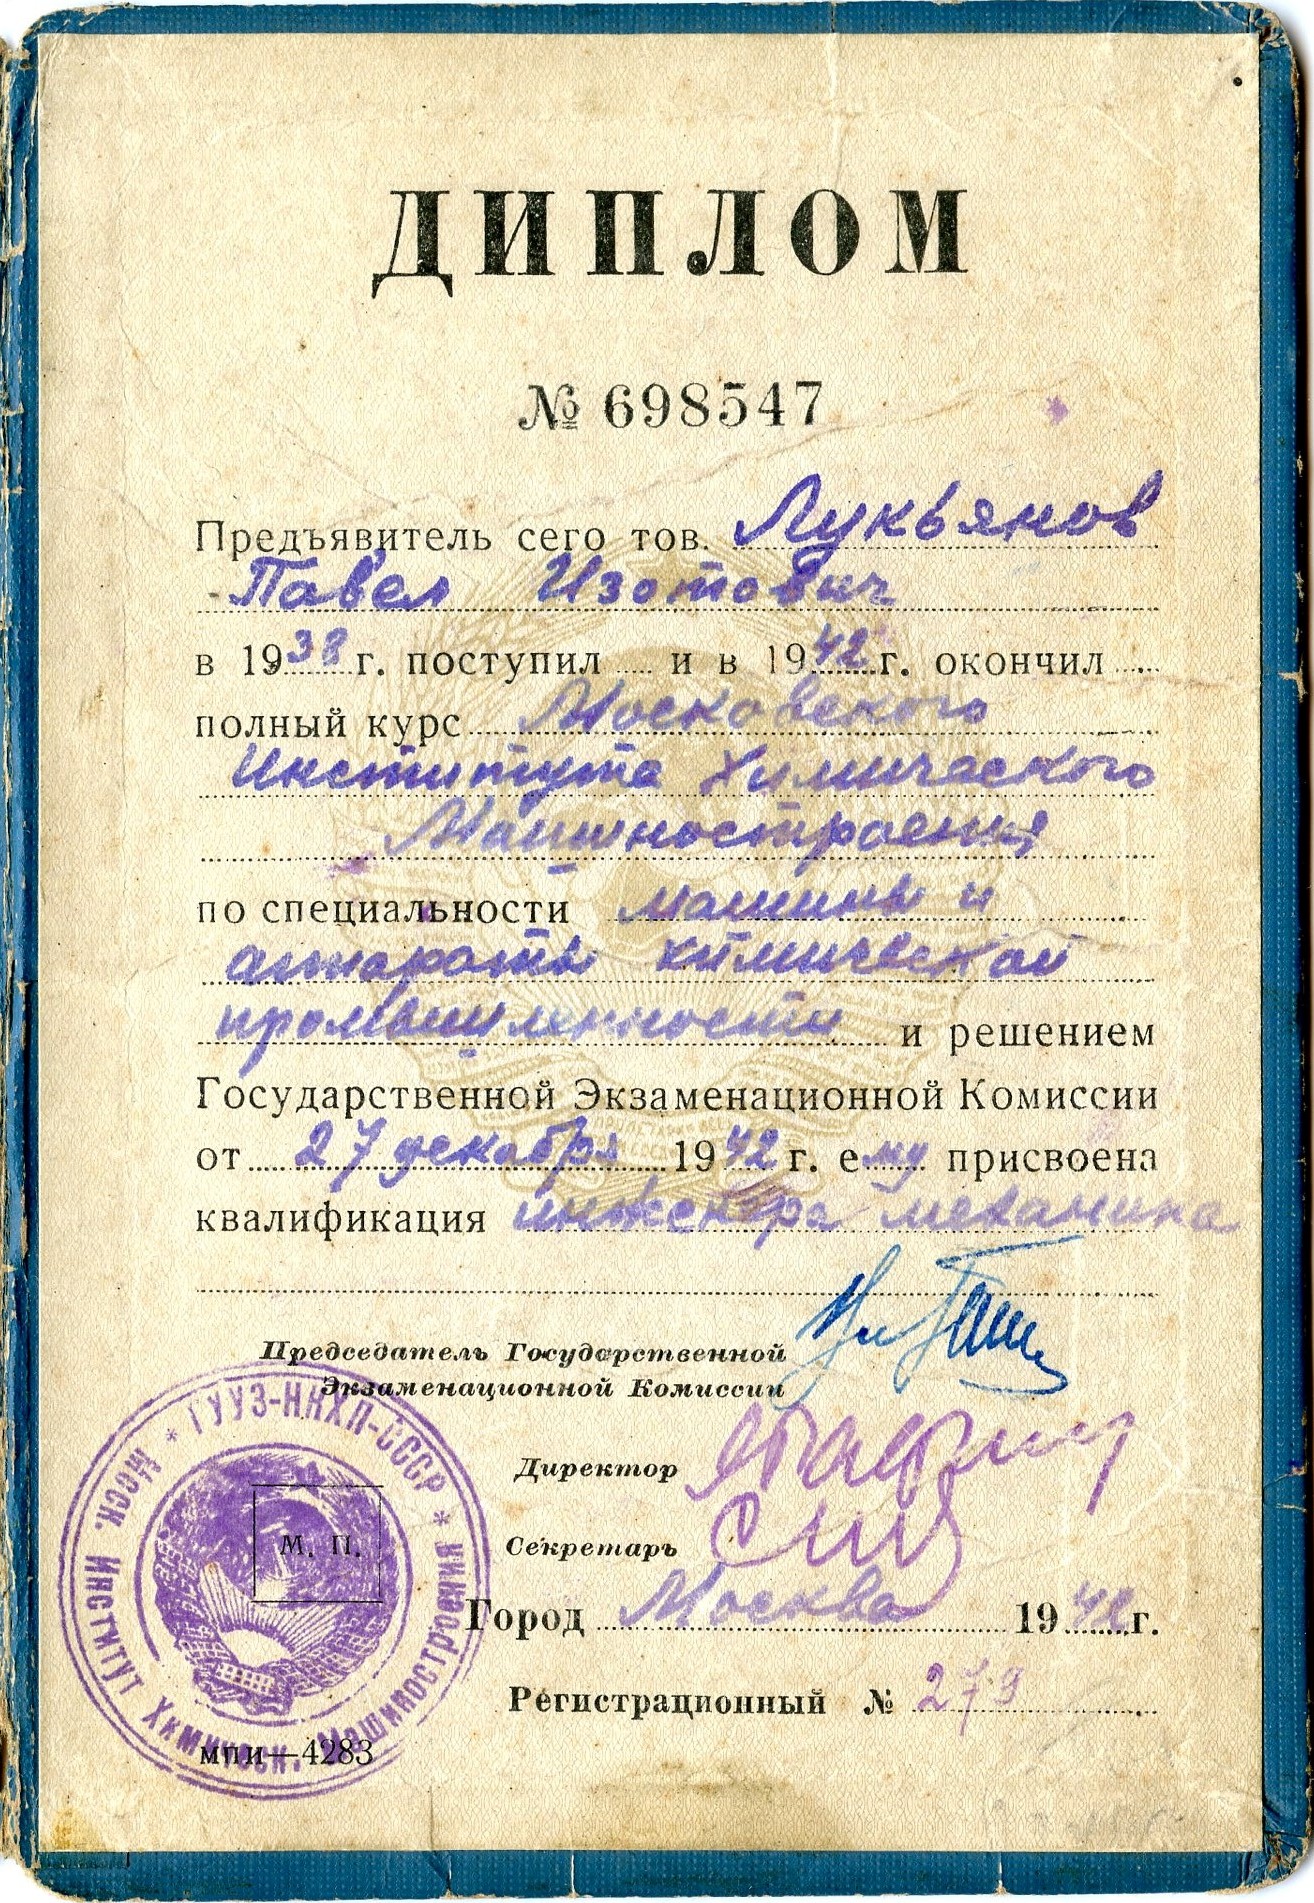 ДИПЛОМ
№ 698547
Предъявитель сего тов. Лукьянов
Павел Изотович
в 1938 г. поступил и в 1942 г. окончил
полный курс Московского
Института Химического
Машиностроения
по специальности машины и
аппараты химической
промышленности и решением
Государственной Экзаменационной Комиссии
от 27 декабря 1942 г. ему присвоена
квалификация инженера механика
Председатель Государственной
Экзаменационной Комиссии
Директор
Секретарь
М. П.
Город Москва 1942 г.
Регистрационный № 279
мпи—4283
* ГУУЗ-НКХП-СССР * Моск. Институт Химическ. Машиностроения